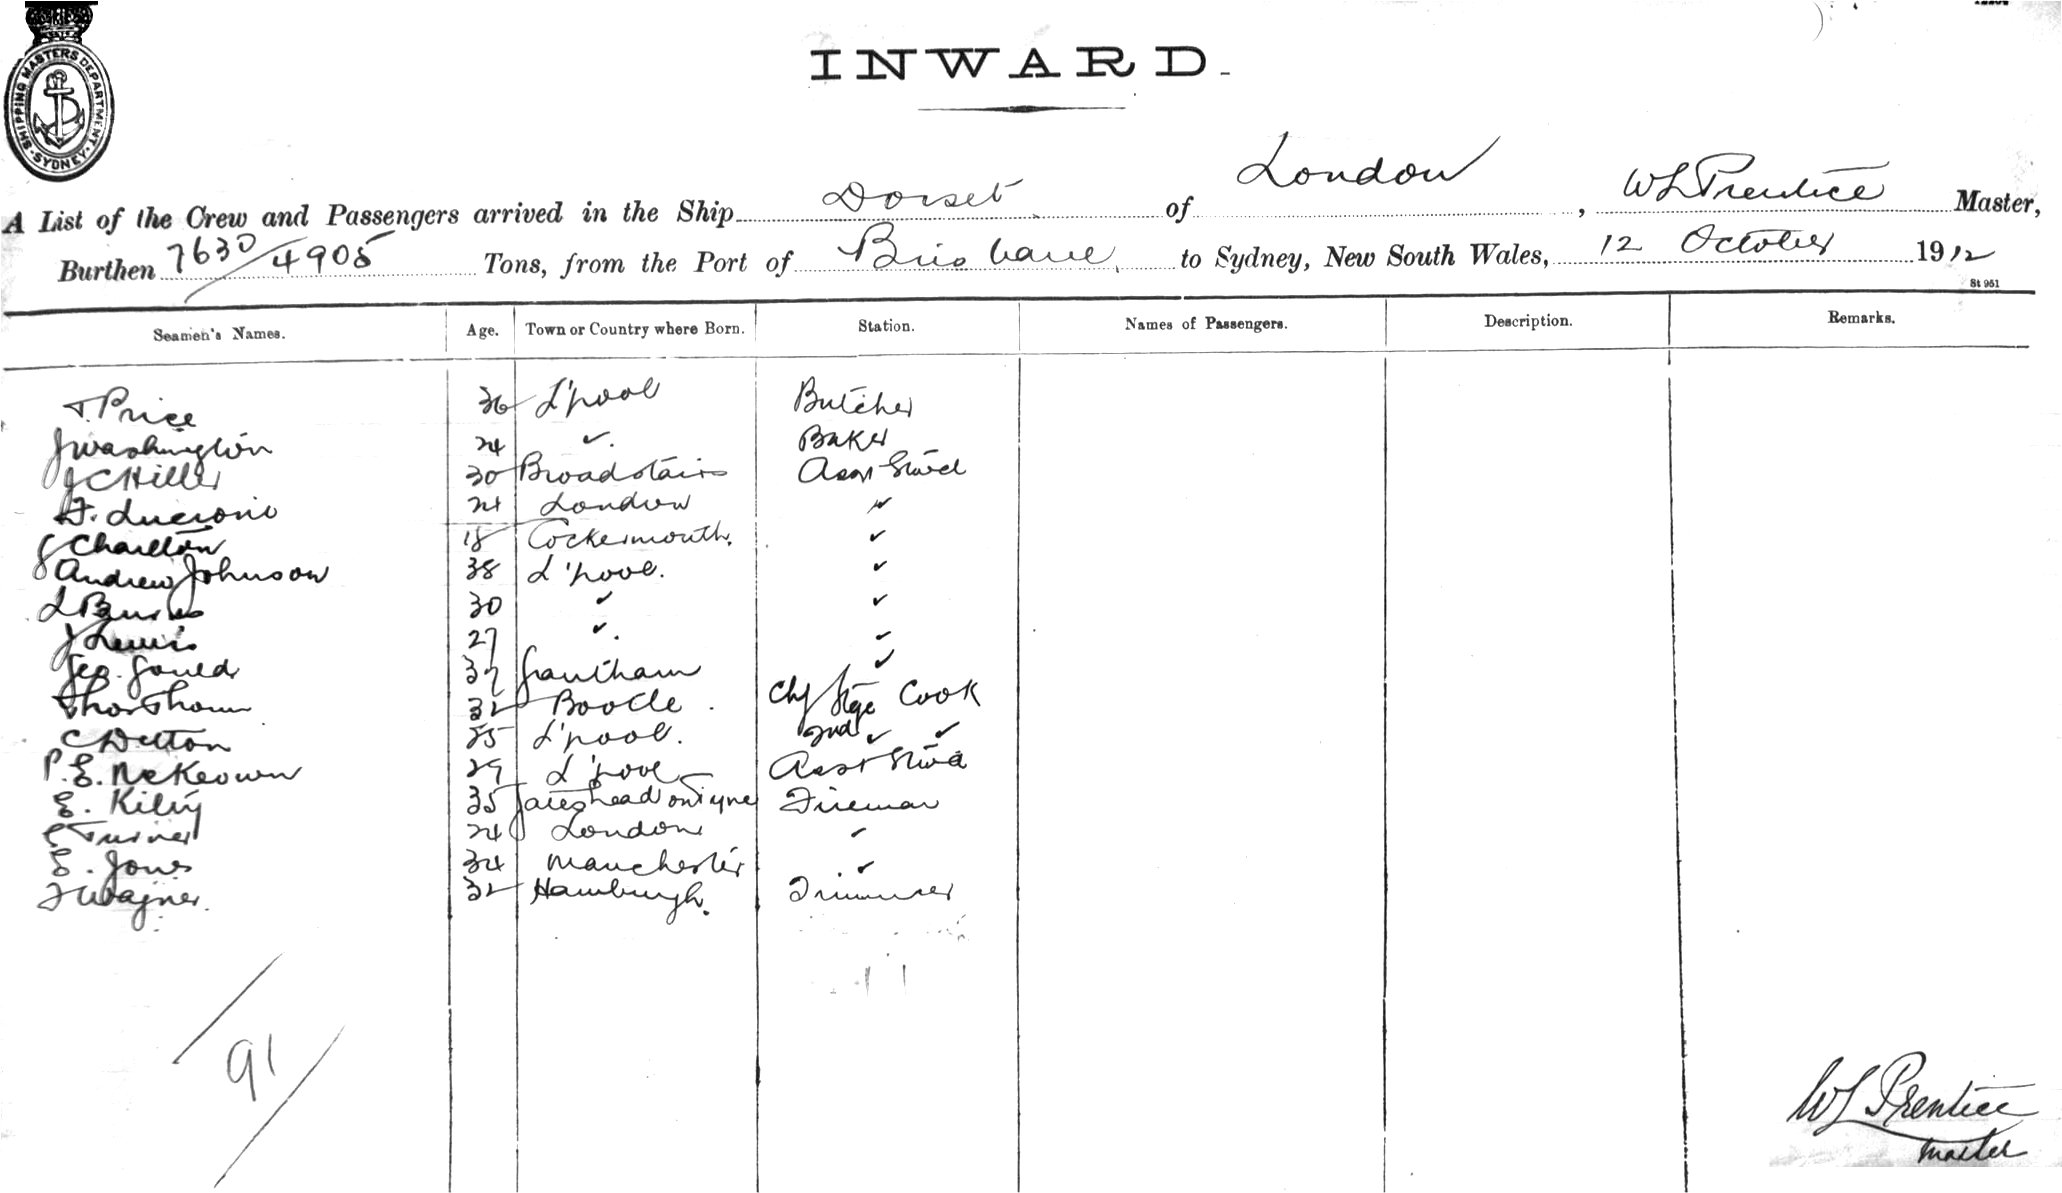 SHIPPING MASTERS DEPARTMENT. SYDNEY.
INWARD.
A List of the Crew and Passengers arrived in the Ship Dorset of London, W L Prentice Master,
Burthen 7630/4905 Tons, from the Port of Brisbane, to Sydney, New South Wales, 12 October 1912
St 951
Seamen's Names. Age. Town or Country where Born. Station. Names of Passengers. Description. Remarks.
T. Price 36 L'pool Butcher
J Washington 24 ✓. Baker
J C Hiller 30 Broadstairs Asst Stwd
24 London ✓
J Charlton 18 Cockermouth. ✓
Andrew Johnson 38 L'pool. ✓
L Burns 30 ✓ ✓
J Lewis 27 ✓. ✓
Geo. Gould 37 Grantham ✓
Thos Thom 32 Bootle. Chf Stge Cook
C Dutton 25 L'pool. 2nd ✓ ✓
P. E. McKeown 29 L'pool Asst Stwd
E. Kilty 35 Gateshead on Tyne Fireman
C Turner 24 London ✓
E. Jones 34 Manchester ✓
F Wagner. 32 Hamburgh. Trimmer
91
W L Prentice
Master